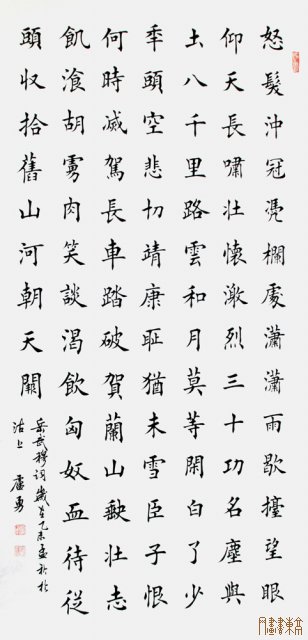 怒髮沖冠凴欄處瀟瀟雨歇擡望眼
仰天長嘯壯懷激烈三十功名塵與
土八千里路雲和月莫等閑白了少
秊頭空悲切靖康恥猶未雪臣子恨
何時滅駕長車踏破賀蘭山缺壯志
飢湌胡虜肉笑談渴飲匈奴血待從
頭收拾舊山河朝天闕
岳武穆詞歲在乙未孟秋於
沽上 盧勇